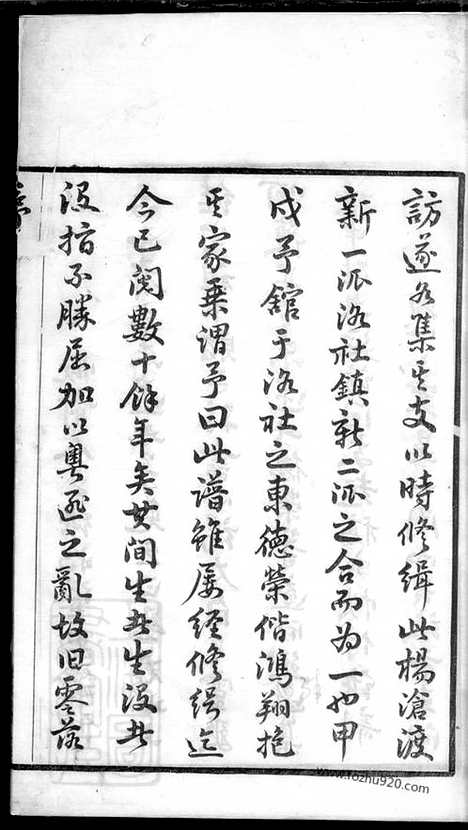 訪遂各集其支以時修緝此楊滄渡
新一派洛社鎮新二派之合而为一也甲
戌予舘于洛社之東德榮偕鴻翔抱
其家乗謂予曰此譜雖屡經修緝迄
今已閲數十餘年矣其間生者生没者
没指不勝屈加以粤逆之亂故旧零落
www.fozhu920.com